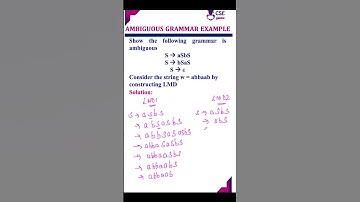 CSE
AMBIGUOUS GRAMMAR EXAMPLE
Show the following grammar is
ambiguous
S → aSbS
S → bSaS
S → ε
Consider the string w = abbaab by
constructing LMD
Solution:
LMD1
S → aSbS
→ abSaSbS
→ abbSaSaSbS
→ abbaSaSbS
→ abbaaSbS
→ abbaabS
→ abbaab
LMD2
S → aSbS
→ abS
→